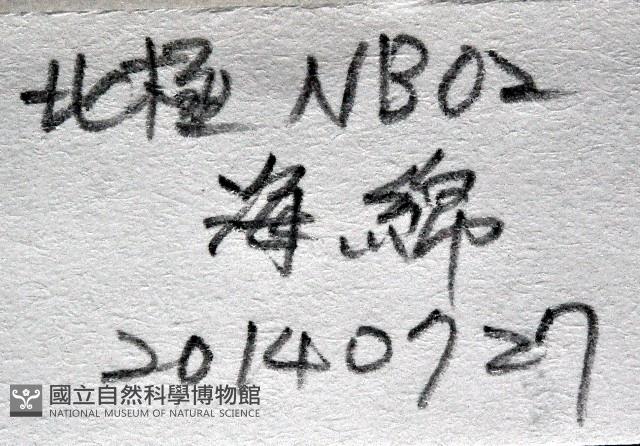 北極 NB02
海綿
20140727
國立自然科學博物館
NATIONAL MUSEUM OF NATURAL SCIENCE